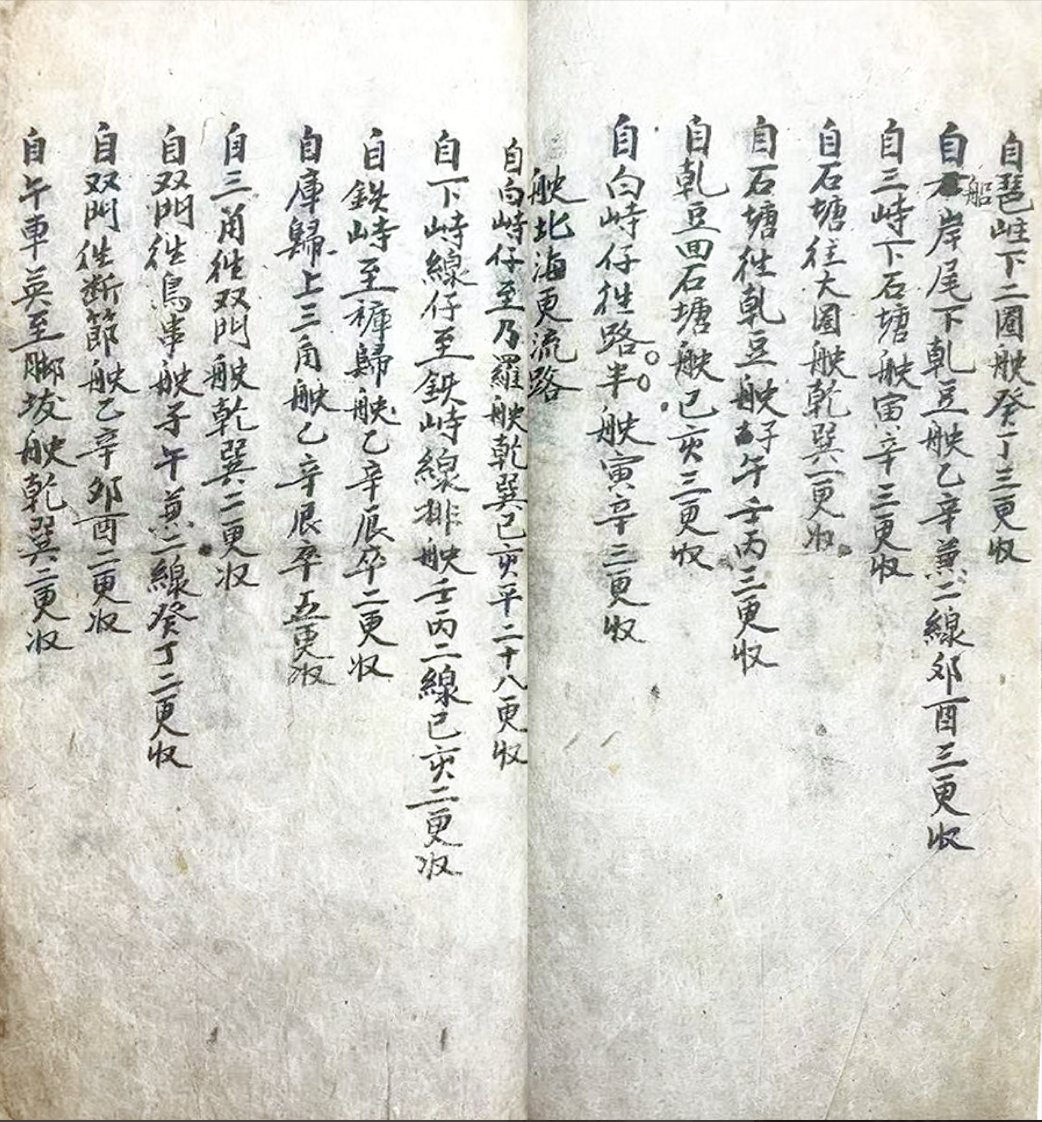 自琶𡉎下二圈舦癸丁三更收
自船岸尾下乹豆舦乙辛兼二線夘酉三更收
自三峙下石塘舦寅辛三更收
自石塘往大圈舦乾巽一更收
自石塘徃乹豆舦子午壬丙三更收
自乹豆囬石塘舦巳亥三更收
自白峙仔徃路半舦寅辛三更收
舦北海更流路
自白峙仔至乃羅舦乾巽巳亥平二十八更收
自下峙線仔至鉄峙線排舦壬丙二線巳亥二更收
自鉄峙至裤歸舦乙辛辰卒二更收
自庫歸上三角舦乙辛辰卒五更收
自三角徃双門舦乾巽二更收
自双門徃鳥串舦子午兼二線癸丁二更收
自双門徃断節舦乙辛夘酉二更收
自午車英至脚坺舦乾巽二更收